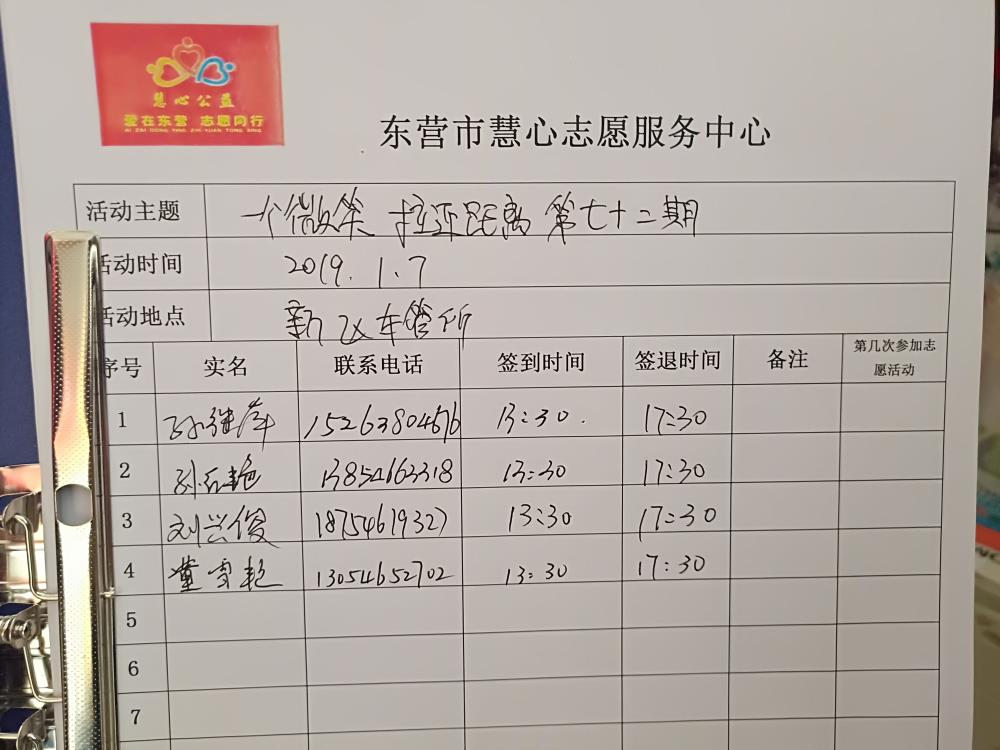 慧心公益
爱在东营 志愿同行
AI ZAI DONG YING ZHI YUAN TONG XING
东营市慧心志愿服务中心
活动主题 一个微笑 拉近距离 第七十二期
活动时间 2019.1.7
活动地点 新区车管所
序号 实名 联系电话 签到时间 签退时间 备注 第几次参加志愿活动
1 孙继萍 15263804676 13:30. 17:30
2 孙红艳 13854663318 13:30 17:30
3 刘兴俊 18754619327 13:30 17:30
4 董雪艳 13054652702 13:30 17:30
5
6
7